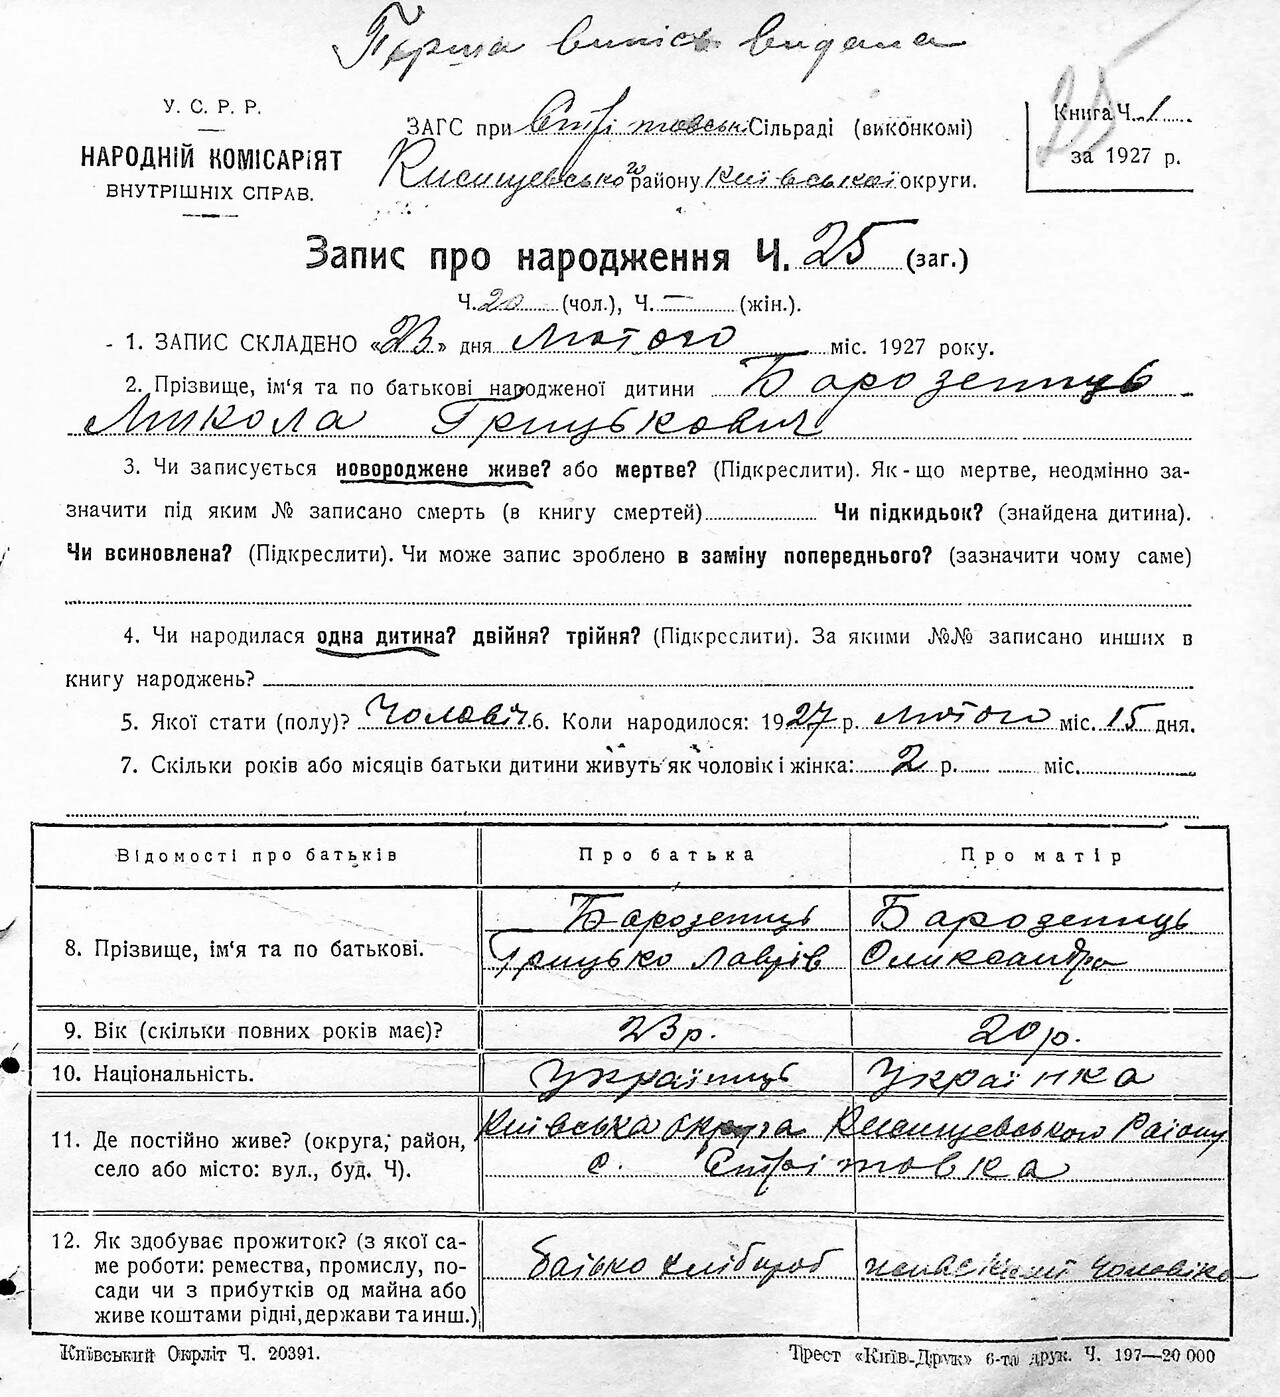 Перша випись видана
У. С. Р. Р.
НАРОДНІЙ КОМІСАРІЯТ
ВНУТРІШНІХ СПРАВ.
ЗАГС при Стрітовській Сільраді (виконкомі)
району Київської округи.
25
Книга Ч. 1
за 1927 р.
Запис про народження Ч. 25 (заг.)
Ч. 20 (чол.), Ч. — (жін.).
1. ЗАПИС СКЛАДЕНО «23» дня Лютого міс. 1927 року.
2. Прізвище, ім‘я та по батькові народженої дитини Барозенець
Микола Грицькович
3. Чи записується новороджене живе? або мертве? (Підкреслити). Як-що мертве, неодмінно за-
значити під яким № записано смерть (в книгу смертей) Чи підкидьок? (знайдена дитина).
Чи всиновлена? (Підкреслити). Чи може запис зроблено в заміну попереднього? (зазначити чому саме)
4. Чи народилася одна дитина? двійня? трійня? (Підкреслити). За якими №№ записано инших в
книгу народжень?
5. Якої стати (полу)? Чоловіч. 6. Коли народилося: 1927 р. Лютого міс. 15 дня.
7. Скільки років або місяців батьки дитини живуть як чоловік і жінка: 2 р. міс.
Відомості про батьків Про батька Про матір
8. Прізвище, ім‘я та по батькові.
Барозенець Барозенець
Грицько Лаврів Олександра
9. Вік (скільки повних років має)? 23 р. 20 р.
10. Національність. Українець Українка
11. Де постійно живе? (округа, район,
село або місто: вул., буд. Ч).
Київська округа Району
с. Стрітовка
12. Як здобуває прожиток? (з якої са-
ме роботи: ремества, промислу, по-
сади чи з прибутків од майна або
живе коштами рідні, держави та инш.)
Батько хлібороб Чоловіка
Київський Окрліт Ч. 20391.
Трест «Київ-Друк» 6-та друк. Ч. 197—20 000